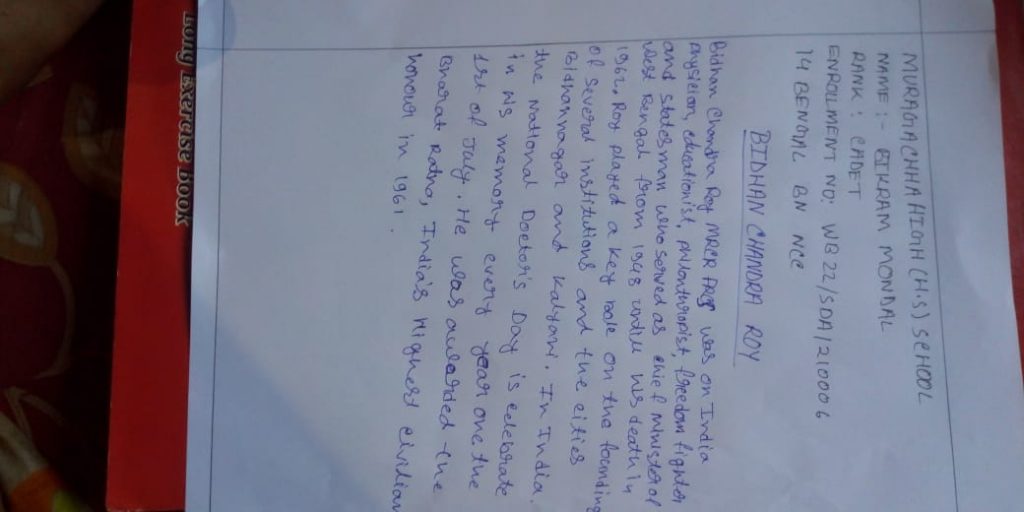 MURAGACHHA HIGH (H.S) SCHOOL
NAME :- BIKRAM MONDAL
RANK : CADET
ENROLMENT NO: WB22/SDA/210006
14 BENGAL BN NCC
BIDHAN CHANDRA ROY
Bidhan Chandra Roy MRCP was on India
physicion, educationist, philanthropist, freedom fighter
and statesman who served as chief Minister of
West Bengal from 1948 until his death in
1962. Roy played a key role on the founding
of several institutions and the cities
Bidhannagar and Kalyani. In India.
the National Doctor's Day is celebrate
in his memory every year one the
1st of July. He was awarded the
Bharat Ratna, India's Highest civilian
honour in 1961.
Long Exercise Book